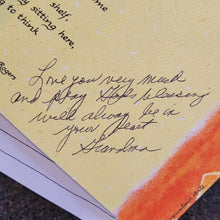 shelf.
my sitting here,
g to think
Rogers
Love you very much
and pray His blessing
will always be in
your heart
Grandma